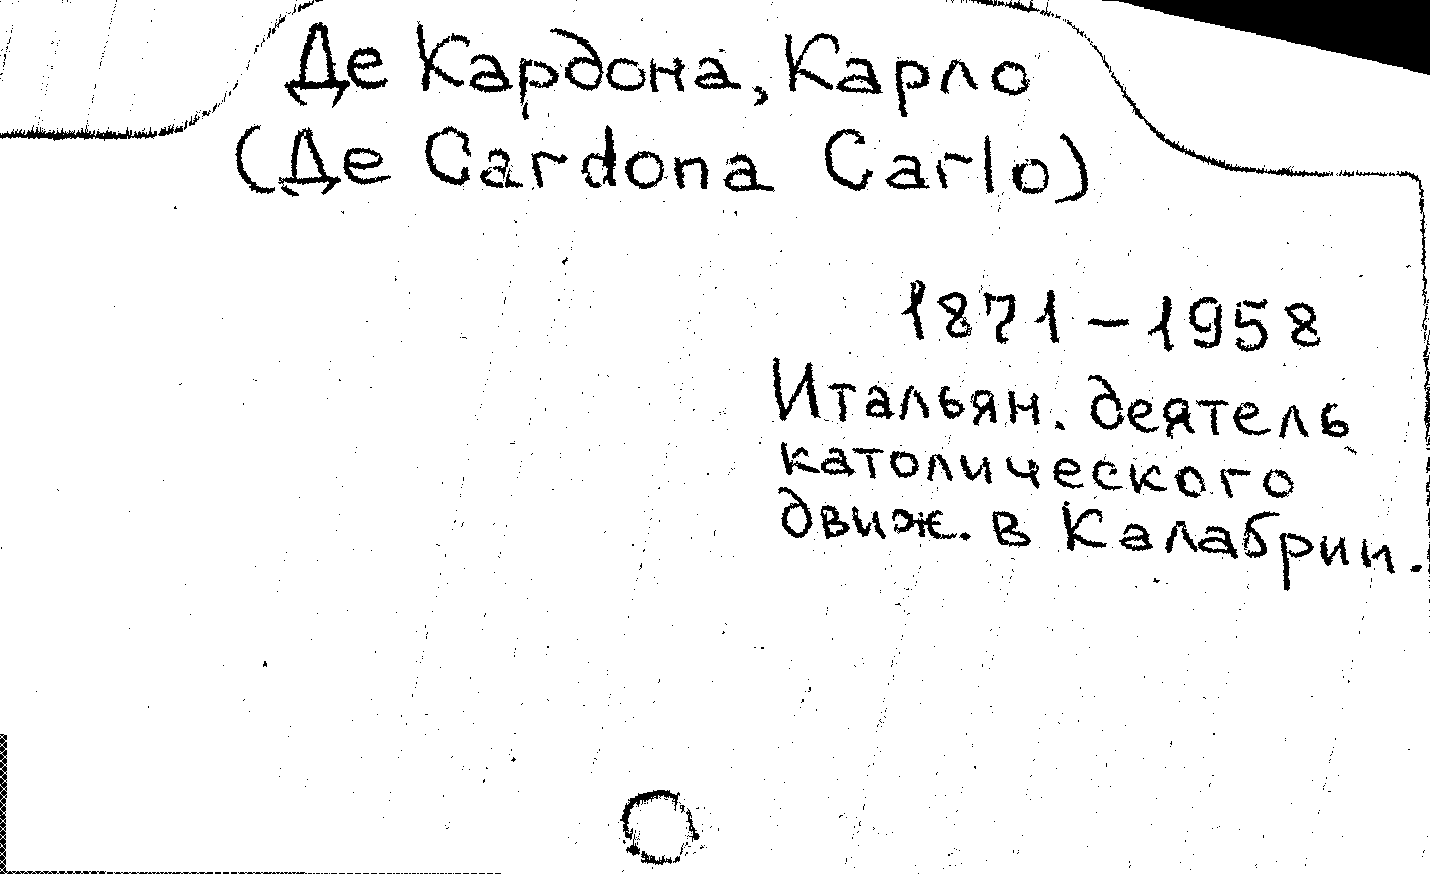 Де Кардона, Карло
(Де Cardona Carlo)
1871 – 1958
Итальян. деятель
католического
движ. в Калабрии.